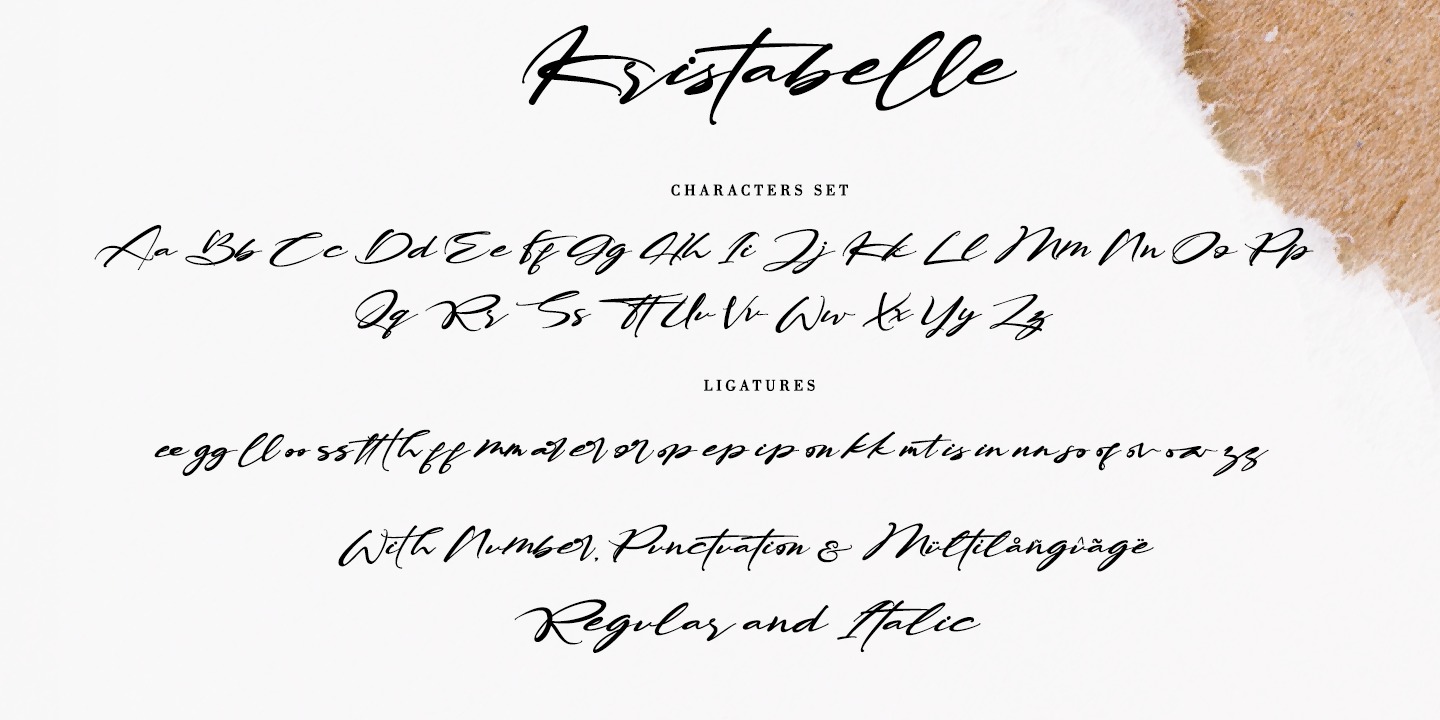 Kristabelle
CHARACTERS SET
Aa Bb Cc Dd Ee Ff Gg Hh Ii Jj Kk Ll Mm Nn Oo Pp
Qq Rr Ss Tt Uu Vv Ww Xx Yy Zz
LIGATURES
ee gg ll oo ss tt th ff mm ar er or op ep ip on kk mt is in nn so of ov ow zz
With Number, Punctuation & Mültilåñgûãgë
Regular and Italic